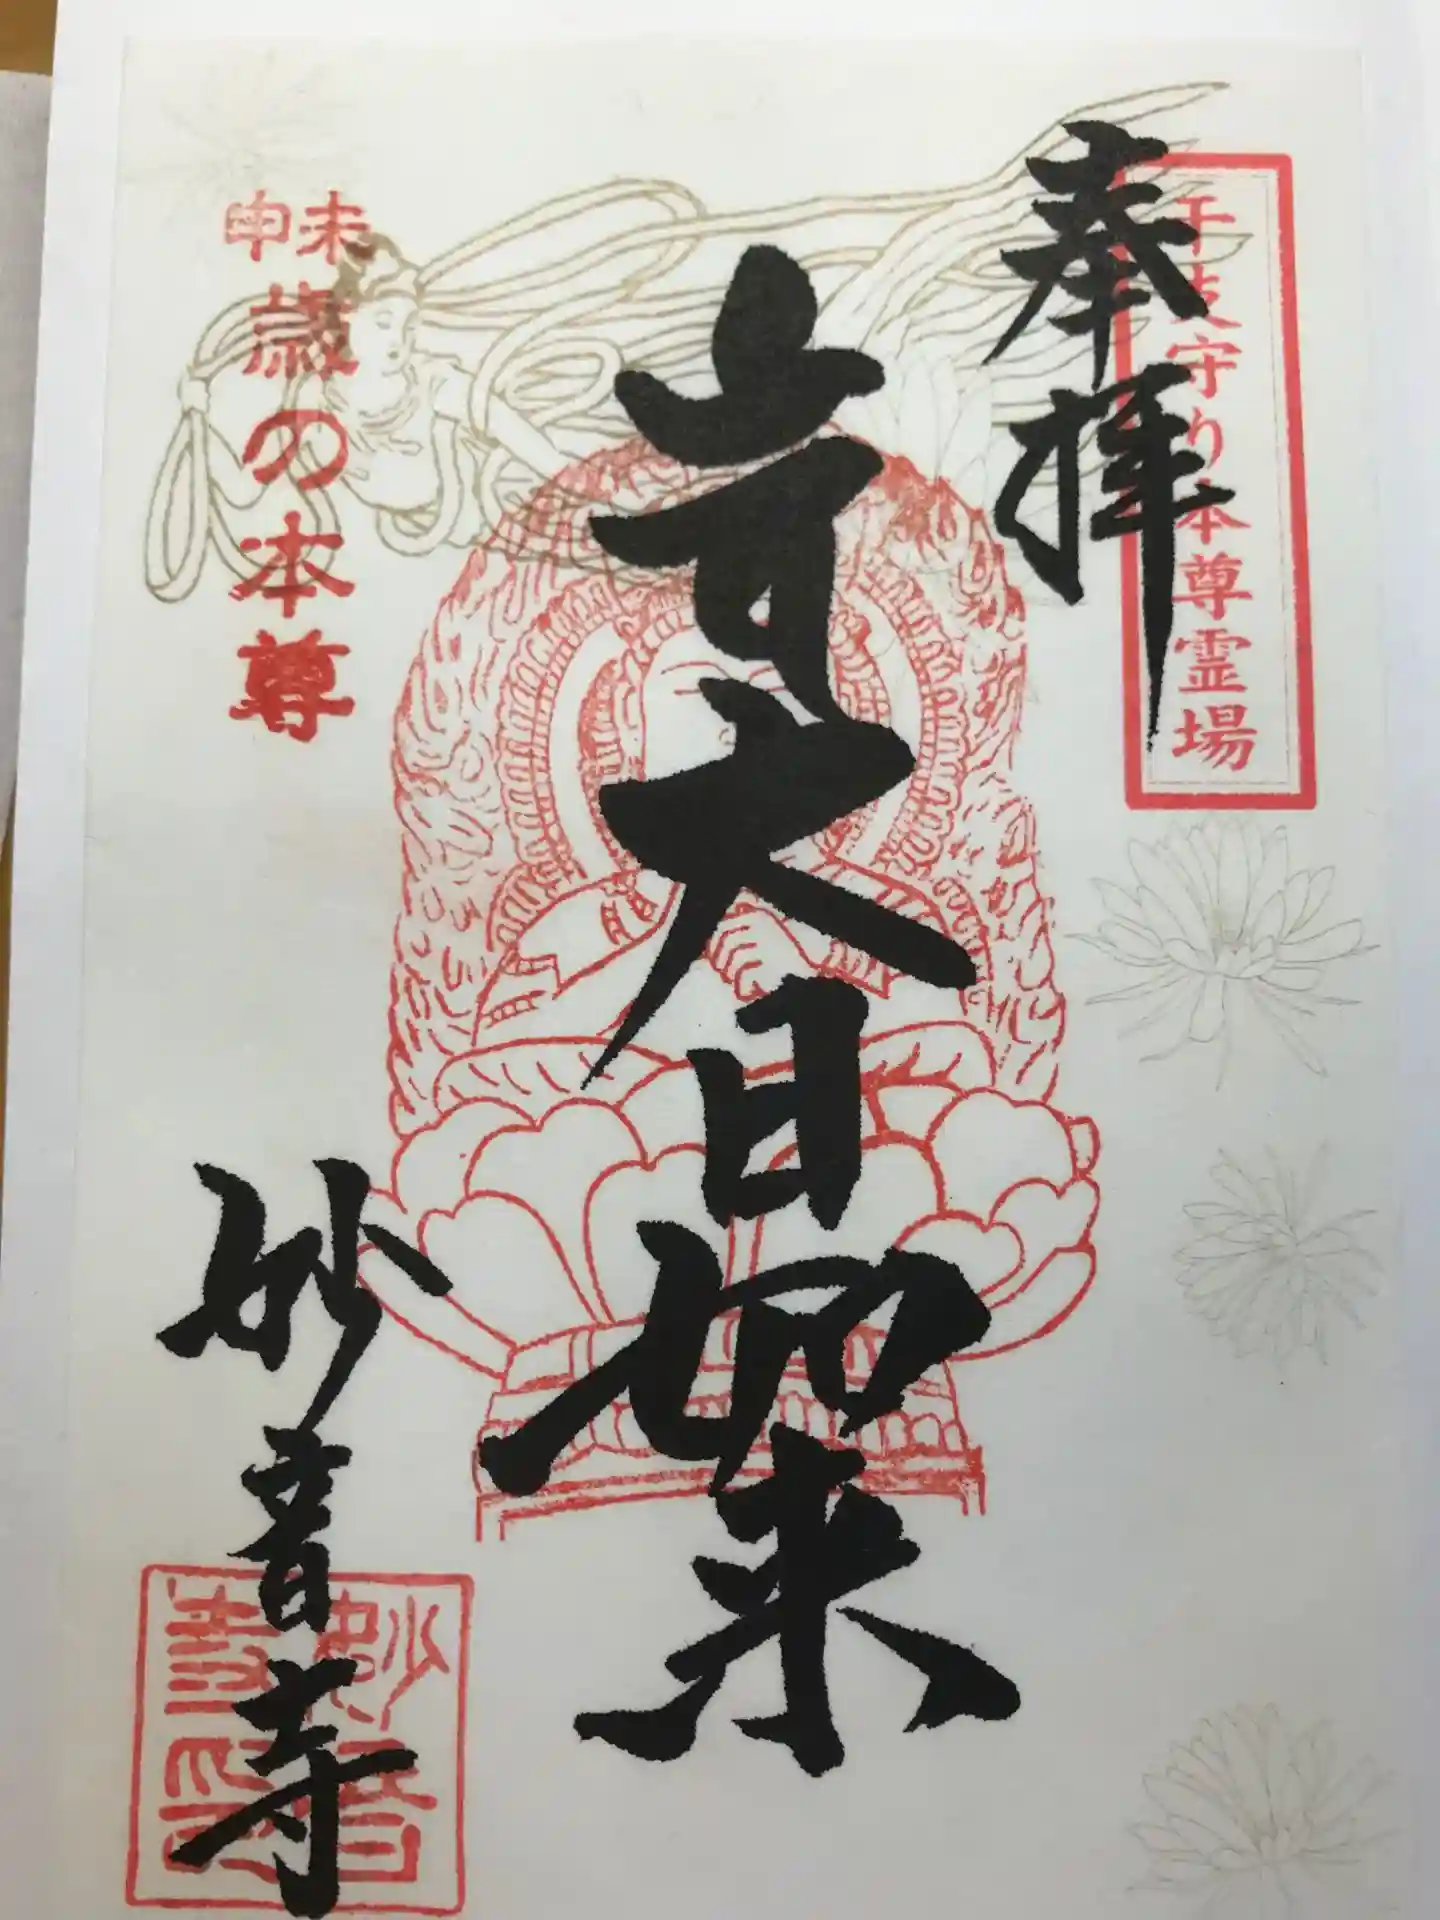 干支守り本尊霊場
奉拝
大日如来
未申
歳の本尊
妙音寺